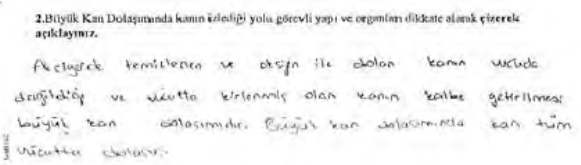 2.Büyük Kan Dolaşımında kanın izlediği yolu görevli yapı ve organları dikkate alarak çizerek
açıklayınız.
Akciğerde temizlenen ve oksijen ile dolan kanın vücuda
dağıldığı ve vücutta kirlenmiş olan kanın kalbe getirilmesi
büyük kan dolaşımıdır. Büyük kan dolaşımında kan tüm
vücutta dolaşır.